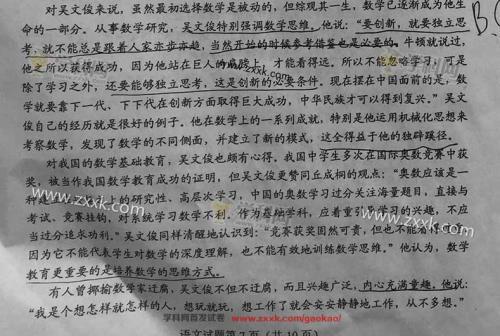 对吴文俊来说，虽然最初选择数学是被动的，但综观其一生，数学已逐渐成为他生
命的一部分。从事数学研究，吴文俊特别强调数学思维。他说：“要创新，就要独立思
考，就不能总是跟着人家亦步亦趋，当然开始的时候参考借鉴也是必要的。牛顿就说过，
他之所以获得成功，因为他站在巨人的肩膀上，才能看得远。所以不能忽略学习，可是
除了学习之外，还要能够独立思考，这是创新的必要条件。现在摆在中国面前的是，数
学就要靠下一代、下下代在创新方面取得巨大成功，中华民族才可以得到复兴。”吴文
俊自己的经历就是很好的例子。他在数学上的一系列成就，特别是他运用机械化思想来
考察数学，发现了数学的不同侧面，并建立了新的模式，这全得益于他的独辟蹊径。
对我国的数学基础教育，吴文俊也颇有心得。我国中学生多次在国际奥数竞赛中获
奖，被当作我国数学教育成功的证明，但吴文俊更赞同丘成桐的观点：“奥数应该是一
种建立在兴趣之上的研究性、高层次学习，中国的奥数学习过分关注海量题目，直接与
考试、竞赛挂钩，对系统学习数学不利。作为基础学科，应着重培养学习的兴趣，不应
当过分追求功利。”吴文俊同样清醒地认识到：“竞赛获奖固然可贵，但也不能
因为它不能代表学生对数学的深度理解，也不能有效地训练数学思维。”他认为，数学
教育更重要的是培养数学的思维方式。
有人曾揶揄数学家迂腐，吴文俊不但不迂腐，而且兴趣广泛，内心充满童趣。他说：
“我是个想怎样就怎样的人，想玩就玩，想工作了就会安安静静地工作，从不多想。”
学科网首发试卷 www.zxxk.com/gaokao/
语文试题第7页（共10页）
www.zxxk.com
zxxk.com